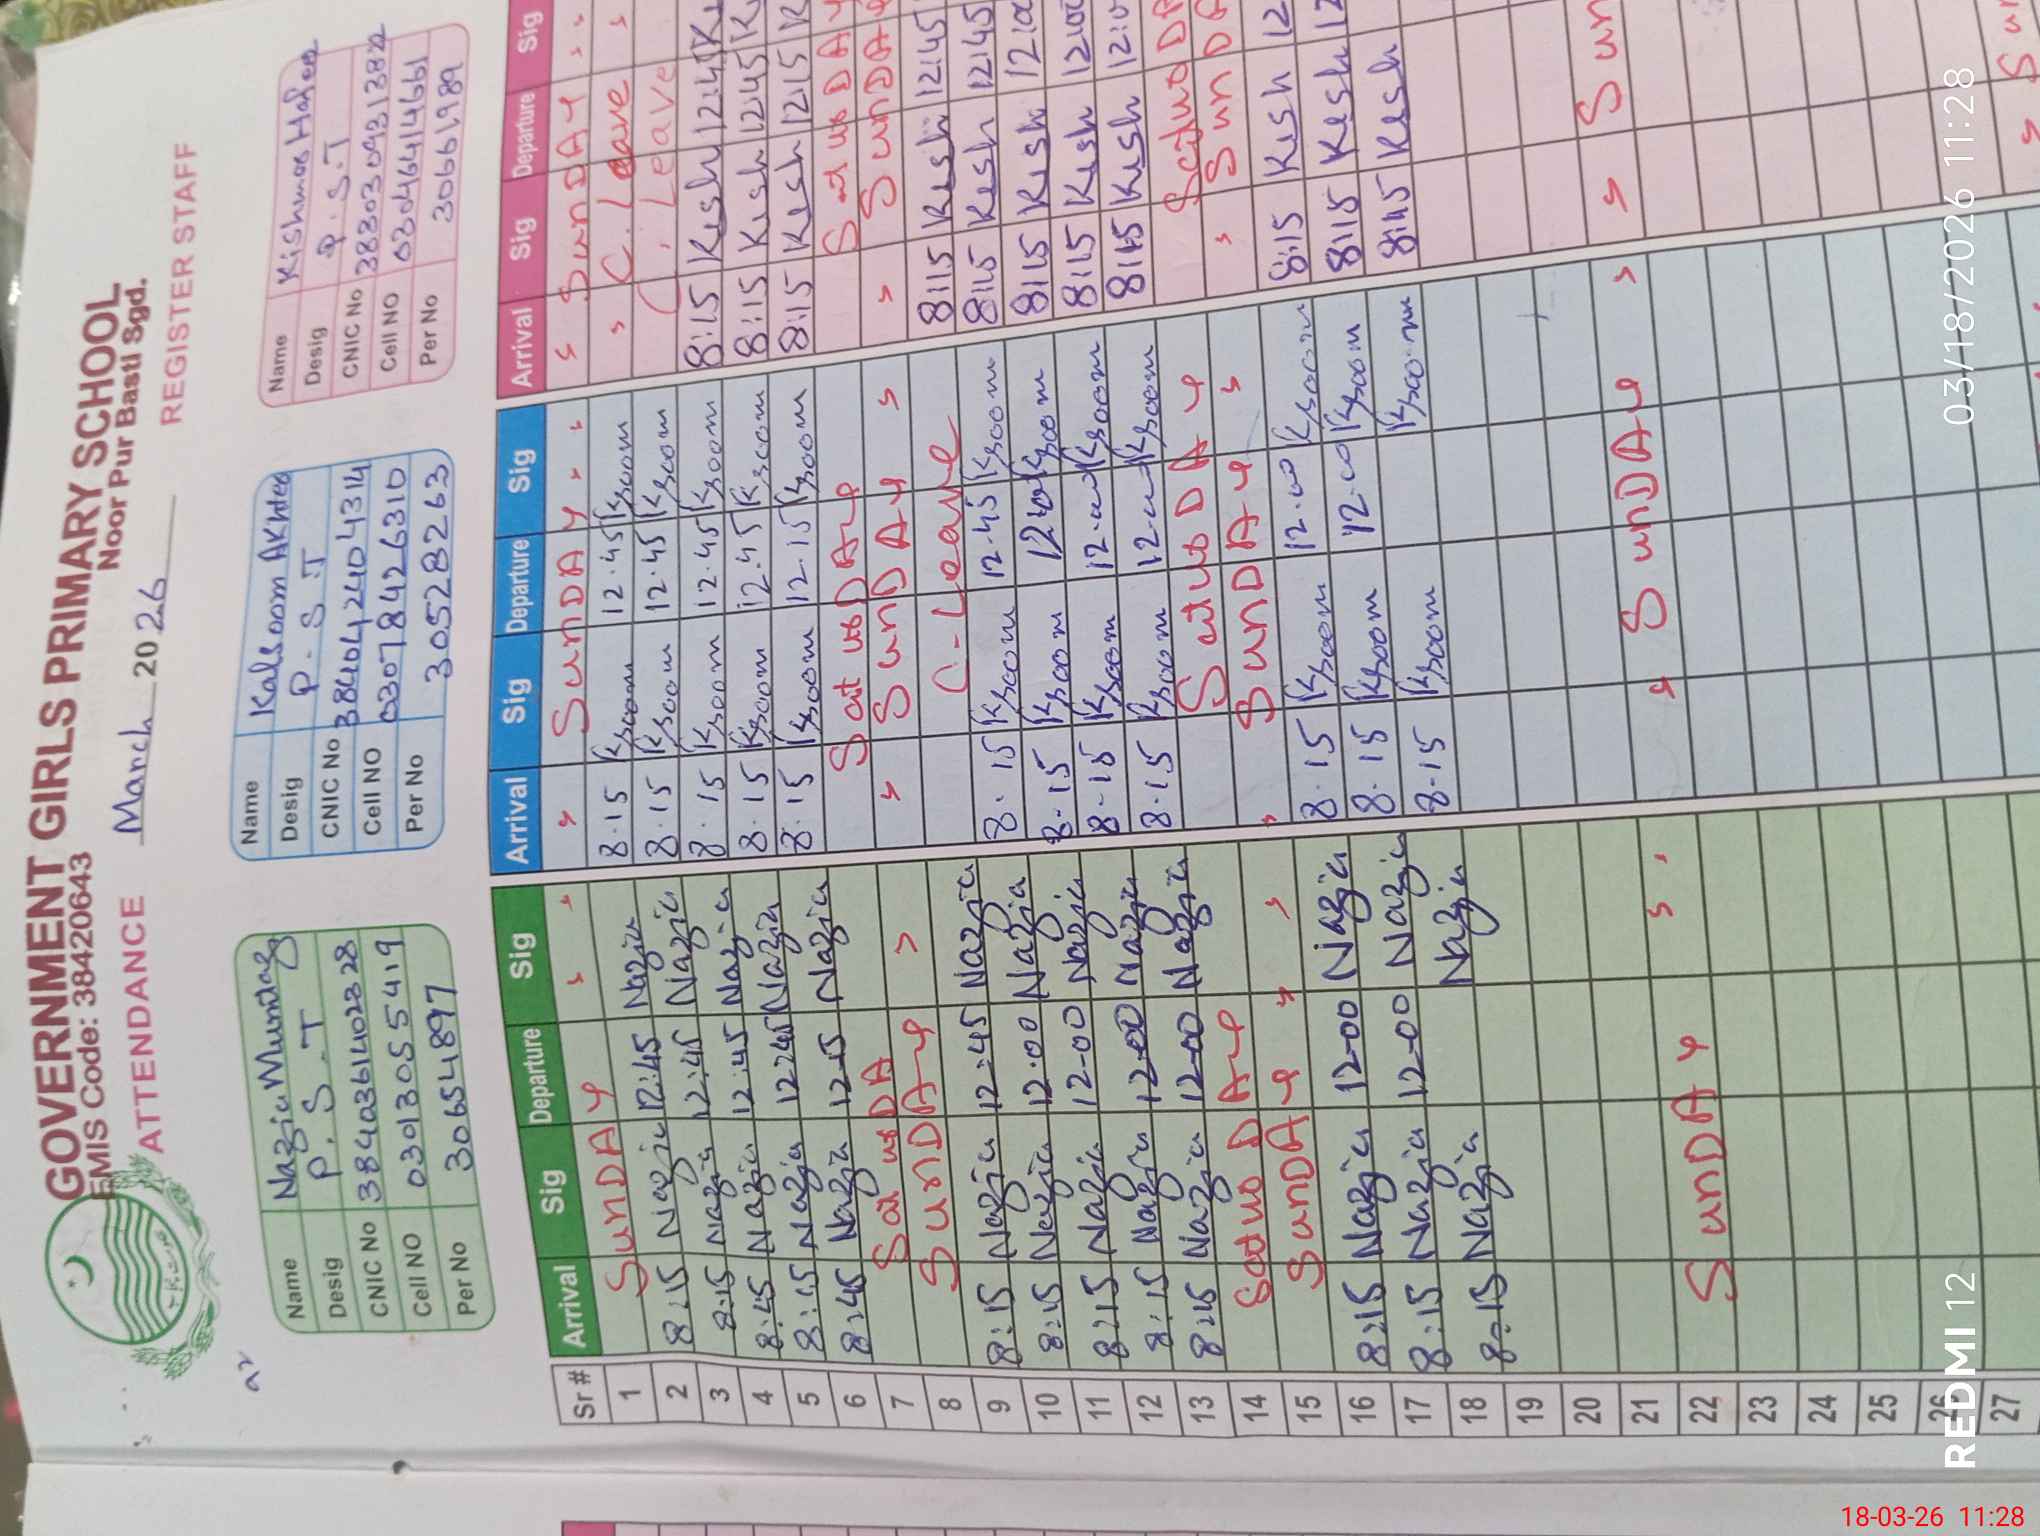 GOVERNMENT GIRLS PRIMARY SCHOOL
EMIS Code: 38420643 Noor Pur Basti Sgd.
ATTENDANCE March 2026 REGISTER STAFF
Name Nazia Mumtaz
Desig P.S.T
CNIC No 3840361402328
Cell NO 03013055419
Per No 30654897
Name Kalsoom Akhter
Desig P.S.T
CNIC No 3840424404314
Cell NO 03078426310
Per No 30528263
Name
Desig P.S.T
CNIC No
Cell NO 030466414661
Per No 30661989
Sr # Arrival Sig Departure Sig Arrival Sig Departure Sig Arrival Sig Departure Sig
1 SunDAy SunDAy SunDAy
2 8:15 Nazia 12:45 Nazia 8.15 Ksoom 12.45 Ksoom C.Leave
3 8:15 Nazia 12:45 Nazia 8.15 Ksoom 12.45 Ksoom C.Leave
4 8:15 Nazia 12.45 Nazia 8.15 Ksoom 12.45 Ksoom 8:15 Kesh 12:45
5 8:15 Nazia 12:45 Nazia 8.15 Ksoom 12.45 Ksoom 8:15 Kesh 12:45
6 8:15 Nazia 12-15 Nazia 8.15 Ksoom 12.15 Ksoom 8:15 Kesh 12:15
7 SaturDA SaturDAy SaturDAy
8 SunDAy SunDAy SunDA
9 8:15 Nazia 12:45 Nazia C-Leave 8:15 Kesh 12:45
10 8:15 Nazia 12.00 Nazia 8.15 Ksoom 12.45 Ksoom 8:15 Kesh 12:45
11 8:15 Nazia 12-00 Nazia 8.15 Ksoom 12.00 Ksoom 8:15 Kesh
12 8:15 Nazia 12-00 Nazia 8.15 Ksoom 12.00 Ksoom 8:15 Kesh 12:00
13 8:15 Nazia 12-00 Nazia 8.15 Ksoom 12.00 Ksoom 8:15 Kesh
14 SaturDAy SaturDAy SaturDA
15 SunDAy SunDAy SunDA
16 8:15 Nazia 12-00 Nazia 8.15 Ksoom 12.00 Ksoom 8:15 Kesh 12
17 8:15 Nazia 12-00 Nazia 8.15 Ksoom 12.00 Ksoom 8:15 Kesh 12
18 8:15 Nazia Nazia 8.15 Ksoom Ksoom 8:15 Kesh Kesh
19
20
21
22 SunDAy SunDAy Sun
23
24
25
26
27
REDMI 12 03/18/2026 11:28
18-03-26 11:28